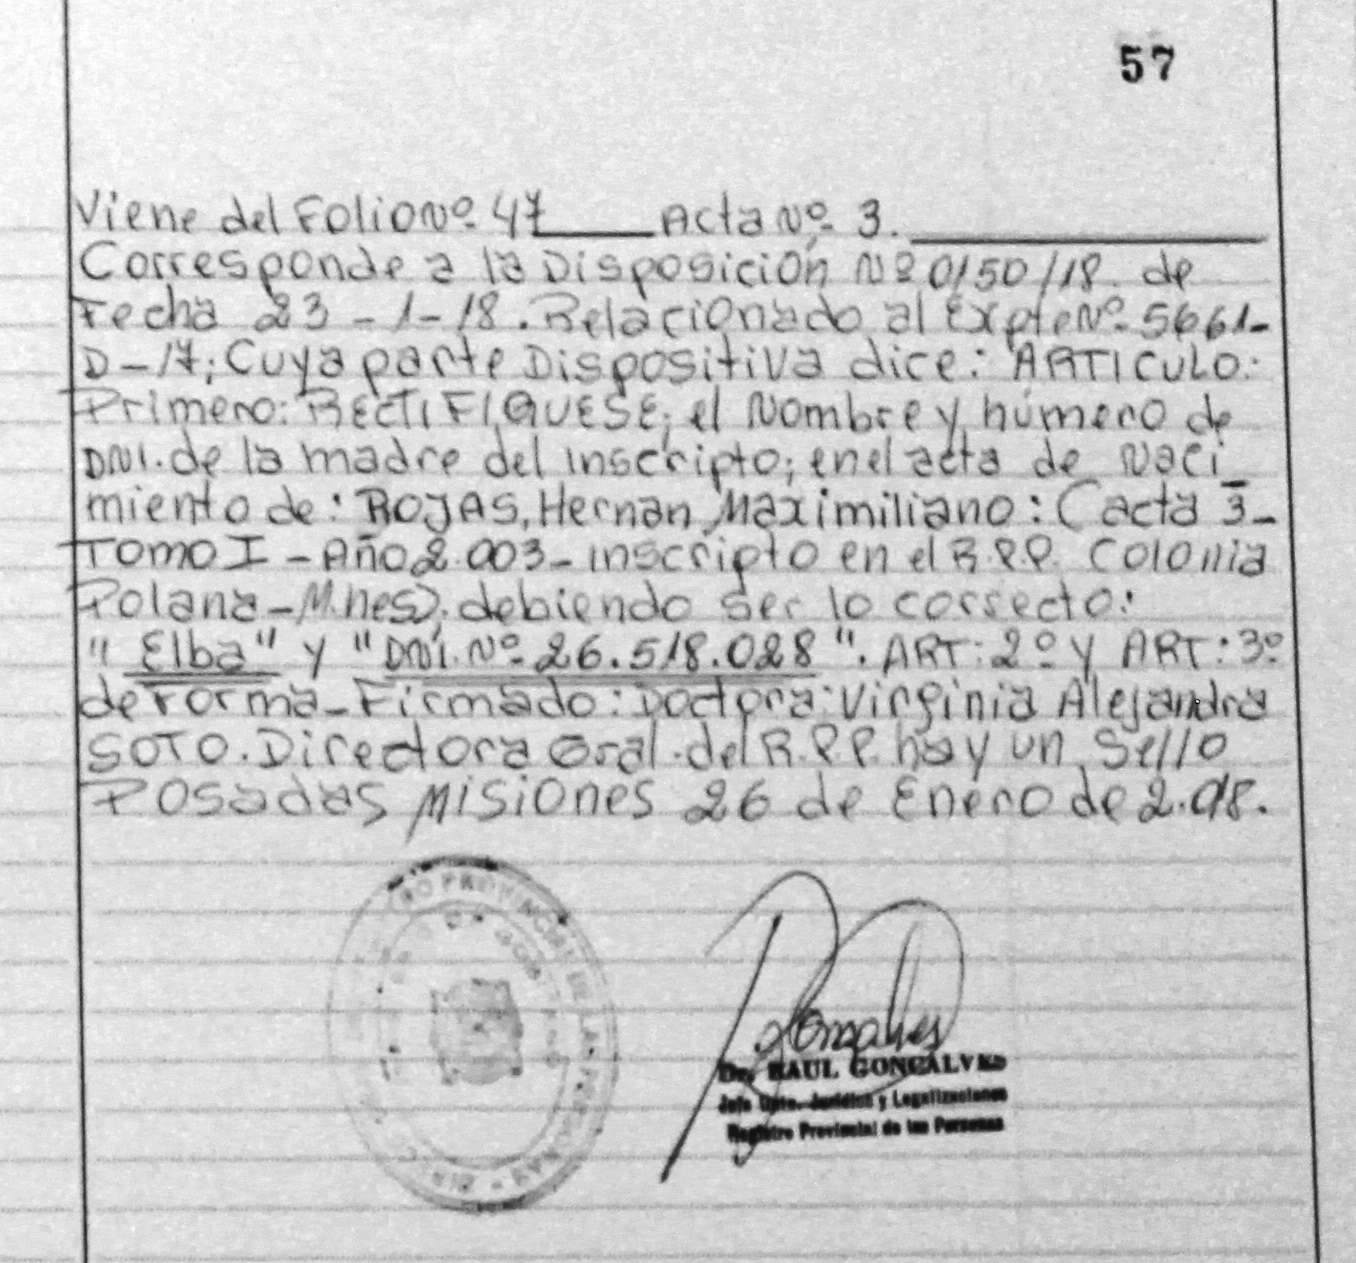 57
Viene del Folio Nº 47 Acta Nº 3.
Corresponde a la Disposición Nº 0150/18 de
Fecha 23-1-18. Relacionado al Expte Nº 5661-
D-17; Cuya parte Dispositiva dice: ARTICULO:
Primero: RECTIFIQUESE; el Nombre y número de
DNI. de la madre del inscripto; en el acta de Naci
miento de: ROJAS, Hernan Maximiliano: (acta 3-
Tomo I - Año 2.003- inscripto en el R.P.P. Colonia
Polana-M.nes). debiendo ser lo correcto:
"Elba" y "DNI. Nº 26.518.028". ART: 2º y ART: 3º
de forma- Firmado: Doctora: Virginia Alejandra
SOTO. Directora Gral. del R.P.P. hay un Sello
Posadas Misiones 26 de Enero de 2.018.
PROVINCIAL DE LAS PERSONAS
Dr. RAUL GONCALVES
Jefe Dpto. Jurídica y Legalizaciones
Registro Provincial de las Personas